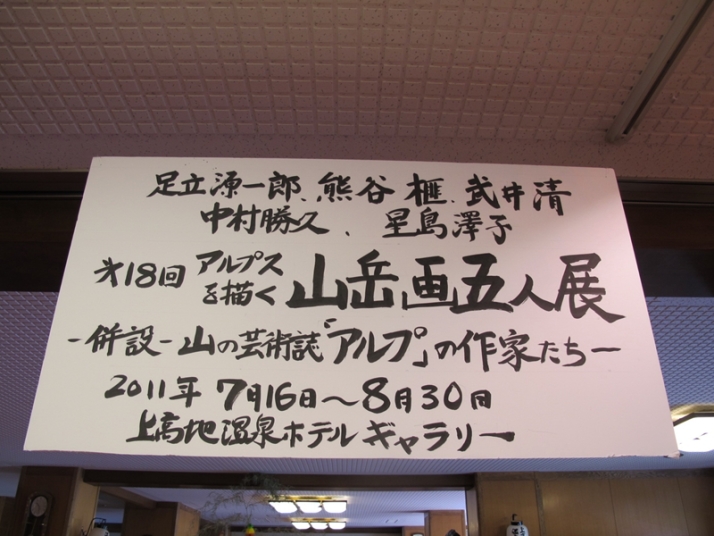 足立源一郎、熊谷榧、武井清
中村勝久、星島澤子
㐧18回 アルプスを描く 山岳画五人展
-併設-山の芸術誌「アルプ」の作家たち-
2011年 7月16日〜8月30日
上高地温泉ホテルギャラリー